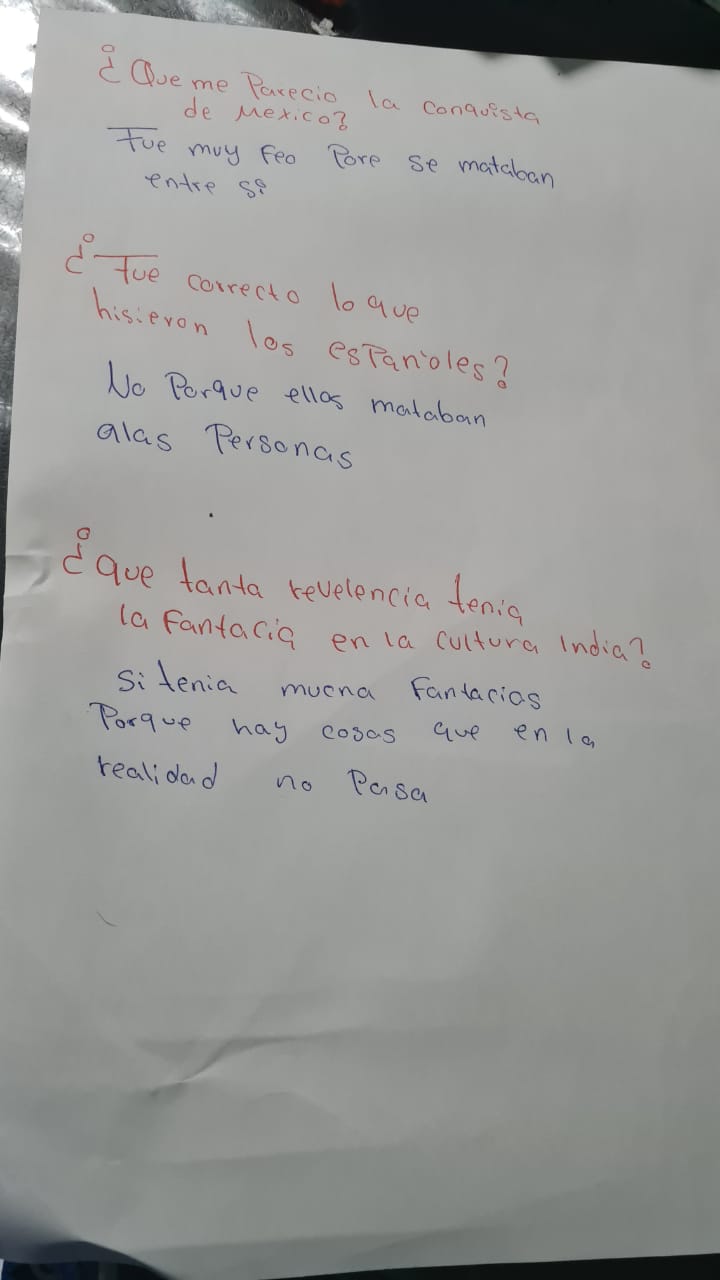 ¿Que me Parecio la conquista
de Mexico?
Fue muy feo Pore se mataban
entre si
¿Fue correcto lo que
hisieron los esPañoles?
No Porque ellos mataban
alas Personas
¿que tanta revelencia tenia
la Fantacia en la cultura India?
Si tenia mucna Fantacias
Porque hay cosas que en la
realidad no Pasa